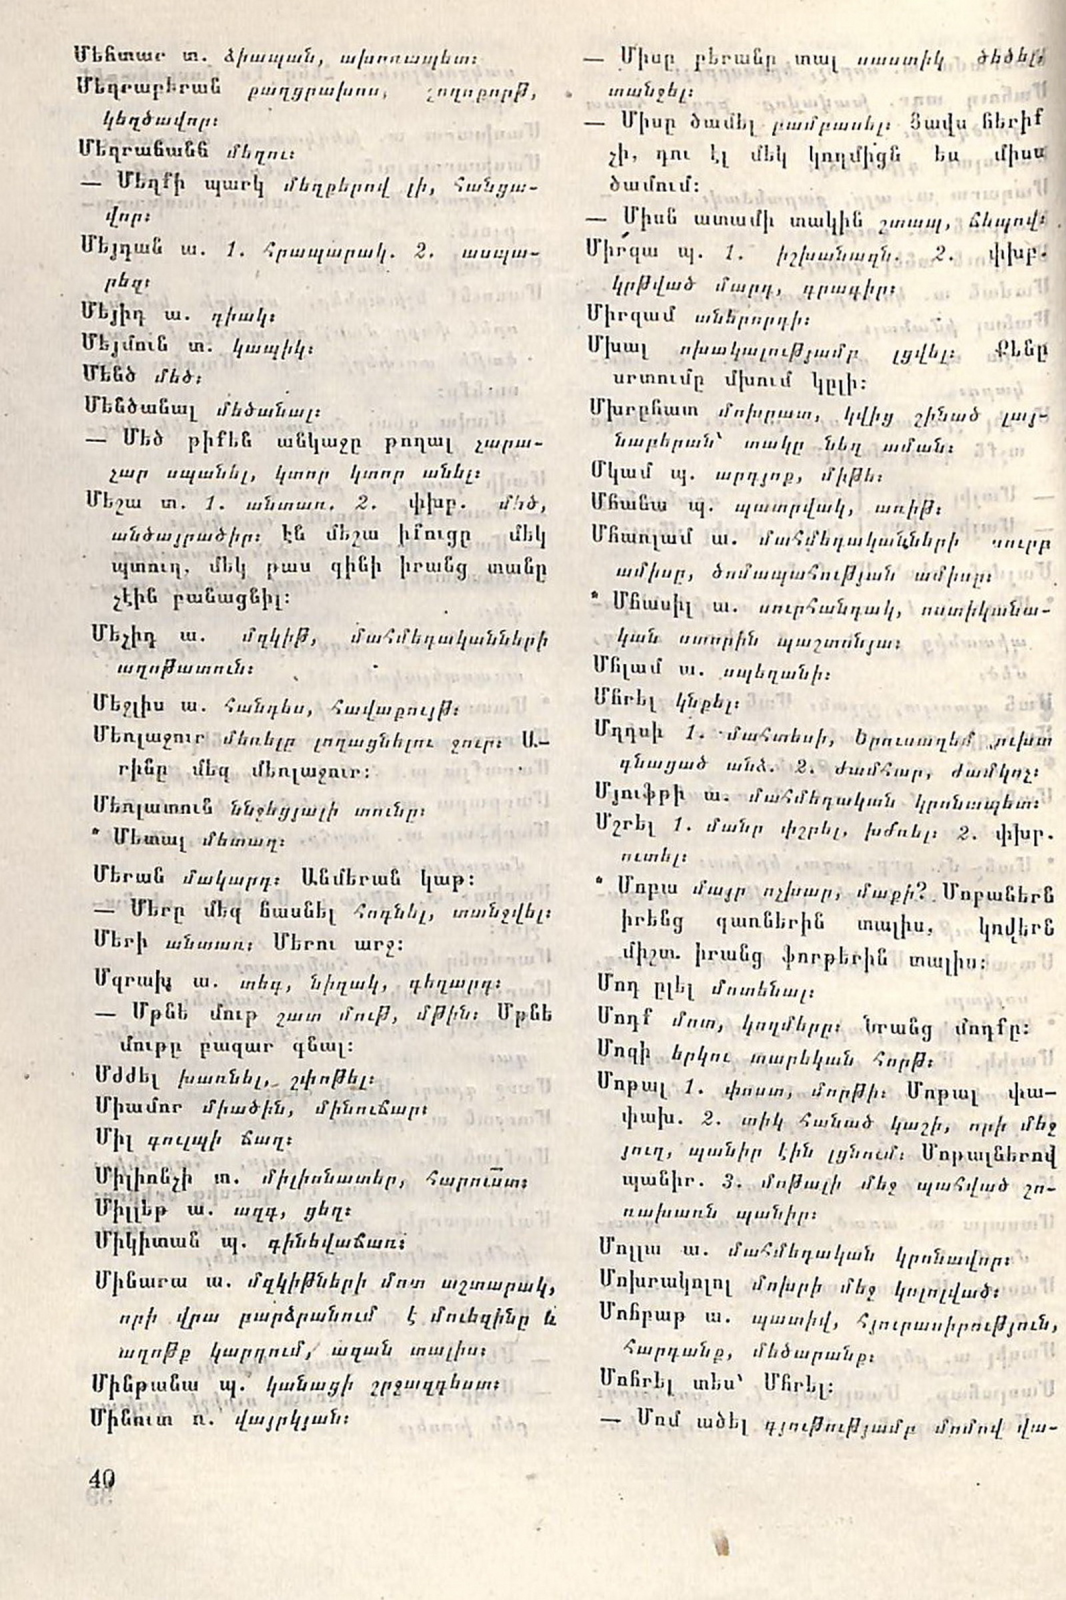 Մեհտար տ. ձիապան, ախոռապետ։
Մեղրաբերան քաղցրախոս, շողոքորթ,
կեղծավոր։
Մեղրաճանճ մեղու։
— Մեղքի պարկ մեղքերով լի, հանցա-
վոր։
Մեյդան ա. 1. հրապարակ. 2. ասպա-
րեզ։
Մեյիդ ա. դիակ։
Մեյմուն տ. կապիկ։
Մենծ մեծ։
Մենծանալ մեծանալ։
— Մեծ թիքեն անկաջը թողալ չարա-
չար սպանել, կտոր կտոր անել։
Մեշա տ. 1. անտառ. 2. փխբ. մեծ,
անծայրածիր։ էն մեշա իմուցը մեկ
պտուղ, մեկ թաս գինի իրանց տանը
չէին բանացնիլ։
Մեչիդ ա. մզկիթ, մահմեդականների
աղոթատուն։
Մեջլիս ա. հանդես, հավաքույթ։
Մեռլաջուր մեռելը լողացնելու ջուր։ Ա-
րինը մեզ մեռլաջուր։
Մեռլատուն ննջեցյալի տունը։
* Մետալ մետաղ։
Մերան մակարդ։ Անմերան կաթ։
— Մերը մեզ հասնել հոգնել, տանջվել։
Մերի անտառ։ Մերու արջ։
Մզրախ ա. տեգ, նիզակ, գեղարդ։
— Մթնե մութ շատ մութ, մթին։ Մթնե
մութը բազար գնալ։
Մժժել խառնել, շփոթել։
Միամոր միածին, մինուճար։
Միլ գուլպի ճաղ։
Միլիոնչի տ. միլիոնատեր, հարուստ։
Միլլեթ ա. ազգ, ցեղ։
Միկիտան պ. գինեվաճառ։
Մինարա ա. մզկիթների մոտ աշտարակ,
որի վրա բարձրանում է մուեզինը և
աղոթք կարդում, ազան տալիս։
Մինթանա պ. կանացի շրջազգեստ։
Մինուտ ռ. վայրկյան։
40
— Միսը բերանը տալ սաստիկ ծեծել,
տանջել։
— Միսը ծամել բամբասել։ Ցավս հերիք
չի, դու էլ մեկ կողմիցն ես միսս
ծամում։
— Միսն ատամի տակին շտապ, ճեպով։
Միրզա պ. 1. իշխանազն. 2. փխբ.
կրթված մարդ, գրագիր։
Միրզամ աներորդի։
Մխալ ոխակալությամբ լցվել։ Քենը
սրտումը մխում կըլի։
Մխրընատ մոխրատ, կվից շինած լայ-
նաբերան՝ տակը նեղ աման։
Մկամ պ. արդյոք, միթե։
Մհանա պ. պատրվակ, առիթ։
Մհառլամ ա. մահմեդականների սուրբ
ամիսը, ծոմապահության ամիսը։
* Մհասիլ ա. սուրհանդակ, ոստիկանա-
կան ստորին պաշտոնյա։
Մհլամ ա. սպեղանի։
Մհրել կնքել։
Մղդսի 1. մահտեսի, Երուսաղեմ ուխտ
գնացած անձ. 2. ժամհար, ժամկոչ։
Մյուֆթի ա. մահմեդական կրոնապետ։
Մշրել 1. մանր փշրել, խժռել։ 2. փխր.
ուտել։
* Մոբա մայր ոչխար, մաքի? Մոբաներն
իրենց գառներին տալիս, կովերն
միշտ իրանց ֆորթերին տալիս։
Մոդ ըլել մոտենալ։
Մոդք մոտ, կողմերը։ Նրանց մոդքը։
Մոզի երկու տարեկան հորթ։
Մոթալ 1. փոստ, մորթի։ Մոթալ փա-
փախ. 2. տիկ հանած կաշի, որի մեջ
յուղ, պանիր էին լցնում։ Մոթալներով
պանիր. 3. մոթալի մեջ պահված շո-
ռախառն պանիր։
Մոլլա ա. մահմեդական կրոնավոր։
Մոխրակոլոլ մոխրի մեջ կոլոլված։
Մոհրաթ ա. պատիվ, հյուրասիրություն,
հարդանք, մեծարանք։
Մոհրել տես՝ Մհրել։
— Մոմ ածել գյութությամբ մոմով վա-